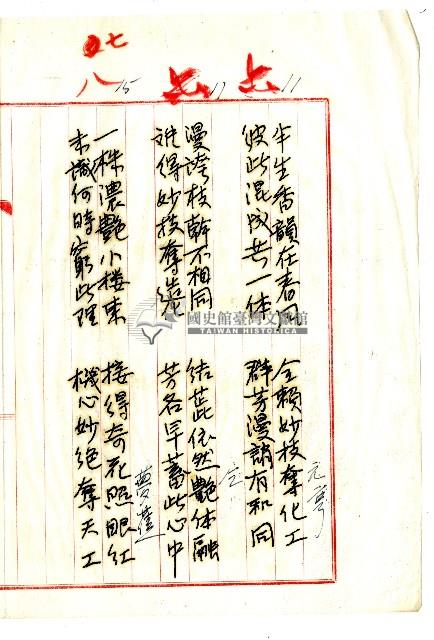 七
八 15
17
11
半生香韻在春風 全賴妙枝奪化工
彼此混成共一体 群芳漫誚有和同
元
漫誇枝幹不相同 結蕊依然艷体融
誰得妙技奪造化 芳名早蓄此心中
仝
一株濃艷小楼東 接得奇花照眼紅
未識何時窮此理 機心妙絕奪天工
夢
國史館臺灣文獻館
TAIWAN HISTORICA